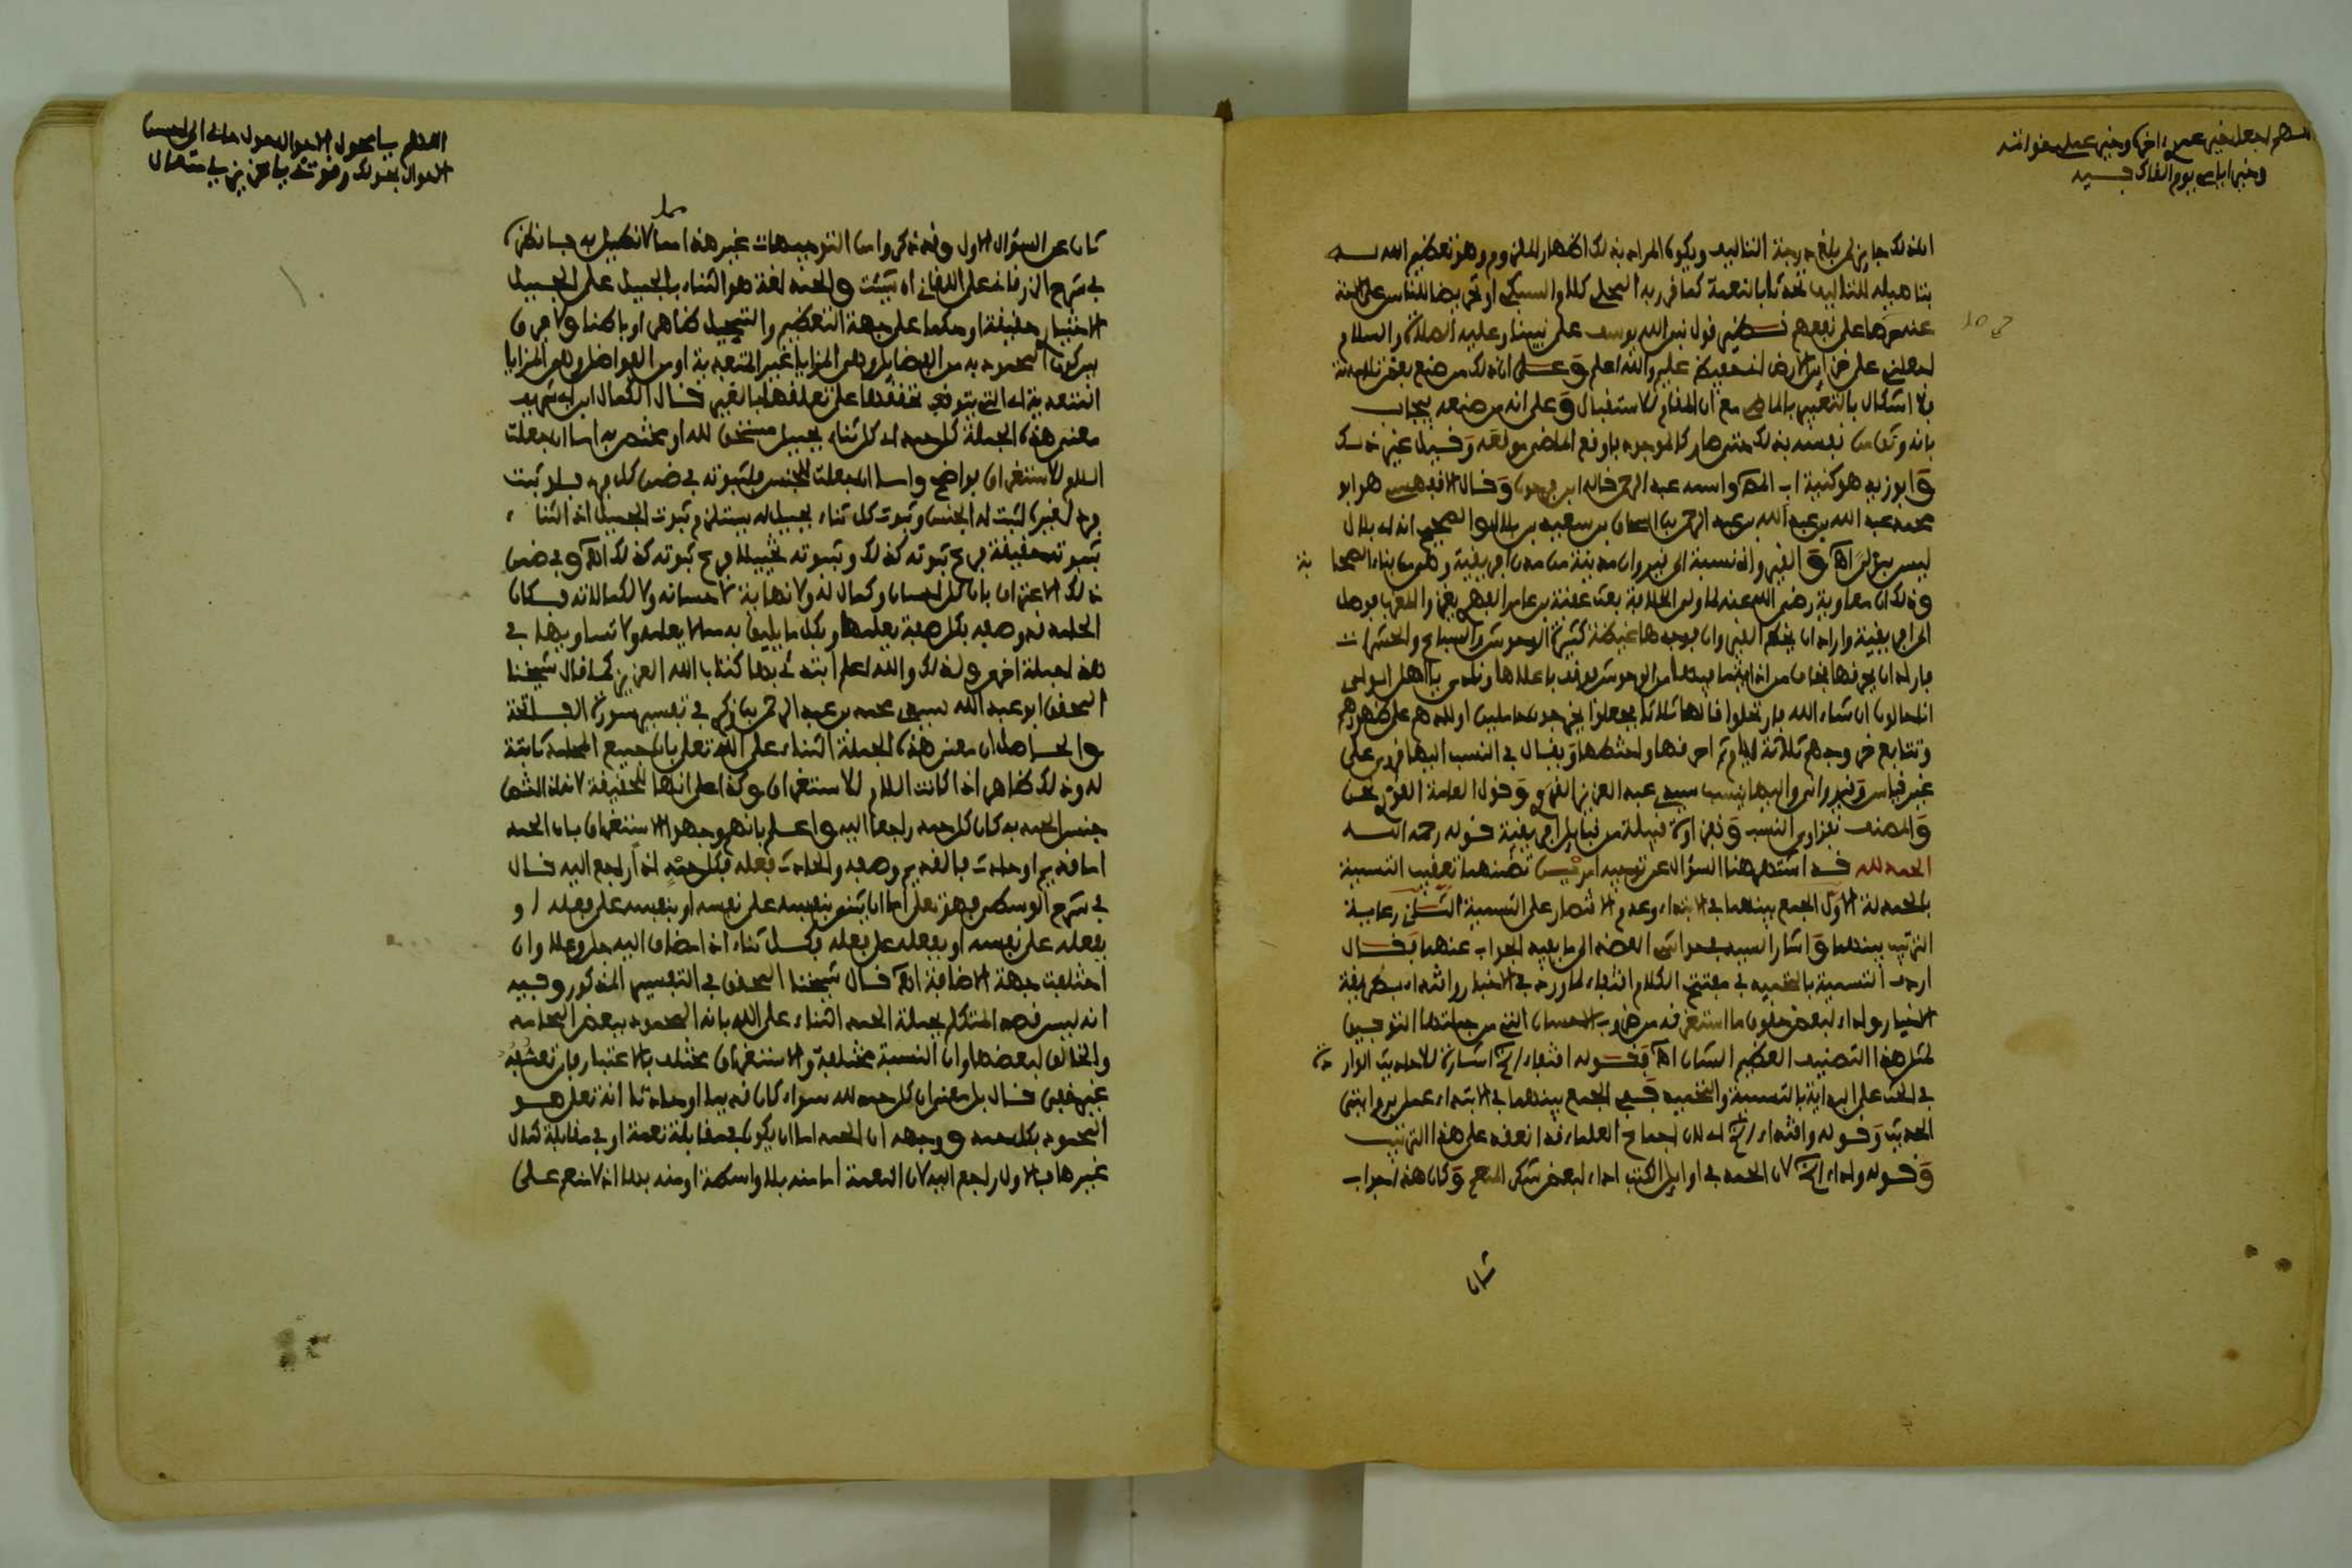 اللهم اجعل خير عمري اخره وخير عملي خواتمه
وخير ايامي يوم القاك فيه
ان ذلك جايز لمن بلغ درجة التاليف ويكون المراد بذلك اظهار الملزوم وهو تعظيم الله له
بتاهيله للتاليف تحدثا بالنعمة كما قرر به المحلي كلام السبكي او تحريضا للناس على
على نفعهم نظير قول نبي الله يوسف على نبينا وعليه الصلاة والسلام
اجعلني على خزاين الارض اني حفيظ عليم والله اعلم وعلى ان ذلك من صنع بعض تلامذته
فلا اشكال بالتعبير بالماضي مع ان المقام للاستقبال وعلى انه من صنعه يجاب
بانه نفسه بذلك حتى صار كالموجود فاوقع الماضي موقعه وقيل غير ذلك
وابو زيد هو كنية اب المص واسمه عبد الرحمن قاله ابن فرحون وقال الاقفهسي هو ابو
محمد عبد الله بن عبد الله بن عبد الرحمن بن سعيد بن بلال والصحيح ان بلال
ليس اه والقيرواني نسبة الى قيروان مدينة من مدن افريقية وهي من بناء الصحابة
وذلك ان معاوية رضي الله عنه لما ولي الخلافة بعث عقبة بن عامر الفهري يغزو المغرب فوصل
الى افريقية واراد ان القيروان فوجدها غيضة كثيرة الوحوش والسباع والحشرات
فاراد ان يحرقها فخاف من اذاية ما فيها من الوحوش فوقف باعلاها ونادى يا اهل الوادي
انا حالون ان شاء الله فارتحلوا قالها ثلاثا فجعلوا يخرجون حاملين اولادهم على ظهورهم
وتتابع خروجهم ثلاثة ايام ثم احرقها واختطها ويقال في النسب اليها قروي على
غير قياس وقيرواني واليها ينسب سيدي عبد العزيز القروي وقول العامة القروي لحن
والمصنف نفزاوي النسب ونفزاوة قبيلة من قبايل افريقية قوله رحمه الله
الحمد لله قد اشتهر هنا السؤال عن توجيه امرين تضمنهما تعقيب التسمية
بالحمدلة الاول الجمع بينهما في الابتداء وعدم الاقتصار على التسمية الثاني رعاية
الترتيب بينهما واشار السيد في حواشي العضد الى ما يفيد الجواب عنهما فقال
اردف التسمية بالتحميد في مفتتح الكلام اقتفاء لما ورد في الاخبار واقتداء بطريقة
الاخيار واداء لبعض حقوق ما استغرقه من ضروب الاحسان التي من جملتها التوفيق
لمثل هذا التصنيف العظيم الشان اه فقوله اقتفاء الخ اشارة للاحاديث الواردة
في الحث على البداية بالتسمية والتحميد ففي الجمع بينهما في الابتداء عمل بروايتي
الحديث وقوله واقتداء الخ اي لان اجماع العلماء قد انعقد على هذا الترتيب
وقوله واداء الخ لان الحمد في اوايل الكتب اداء لبعض شكر المنعم وكان هذا جواب
ثان
اللهم يا محول الاحوال حول حالي الى احسن
الاحوال بحولك وقوتك يا عزيز يا متعال
ثان عن السؤال الاول وقد ذكروا من التوجيهات غير هذا مما لا نطيل به فانظره
في شرح الزرقاني على اللقاني ان شيئت والحمد لغة هو الثناء بالجميل على الجميل
الاختياري حقيقة او حكما على جهة التعظيم والتبجيل ظاهرا وباطنا ولا فرق
بين كون المحمود به من الفضايل وهي المزايا غير المتعدية او من الفواضل وهي المزايا
المتعدية اي التي يتوقف تحققها على تعلقها بالغير قال الكمال ابن ابي شريف
معنى هذه الجملة كل حمد اي كل ثناء بجميل مستحق لله او مختص به اما ان جعلت
اللام للاستغراق فواضح واما ان جعلت للجنس فلثبوته في ضمن كل فرد فلو ثبت
فرد لغيره لثبت له الجنس وثبوت كل ثناء بجميل له يستلزم ثبوت الجميل اذ الثناء
ثبوته حقيقة فرع ثبوته كذلك وثبوته تخييلا فرع ثبوته كذلك اه وفي ضمن
ذلك الاعتراف بان كل احسان وكمال له ولا نهاية لاحسانه ولا لكمالاته فكان
الحامد قد وصفه بكل صفة يعلمها وبكل ما يليق به مما لا يعلمه ولا تساويها في
هذه جملة اخرى ولذلك والله اعلم ابتدئ بها كتاب الله العزيز كما قال شيخنا
المحقق ابو عبد الله سيدي محمد بن عبد الرحمن بن زكري في تفسير سورة الفاتحة
والحاصل ان معنى هذه الجملة الثناء على الله تعالى بان جميع المحامد ثابتة
له وذلك ظاهر اذا كانت اللام للاستغراق وكذا على انها للحقيقة لانه اذا اختص
جنس الحمد به كان كل حمد راجعا اليه واعلم بانهم وجهوا الاستغراق بان الحمد
اما قديم او حادث فالقديم وصفه والحادث فعله فكل حمد اذا راجع اليه قال
في شرح الوسطى فهو تعالى اما ان يثني بنفسه على نفسه او بنفسه على فعله او
بفعله على نفسه او بفعله على فعله فكل ثناء اذا مضاف اليه جل وعلا وان
اختلفت جهة الاضافة اه قال شيخنا المحقق في التفسير المذكور وفيه
انه ليس قصد المتكلم بجملة الحمد الثناء على الله بانه المحمود ببعض المحامد
والخالق لبعضها وان النسبة مختلفة والاستغراق مختلف بالاعتبار
غير خفي قال بل معنى ان كل حمد لله سواء كان قديما او حادثا انه تعلى هو
المحمود بكل حمد ووجهه ان الحمد اما ان يكون في مقابلة نعمة او في مقابلة كمال
غيرها فالاول راجع اليه لان النعمة اما منه بلا واسطة او منه بها اذ لا منعم على